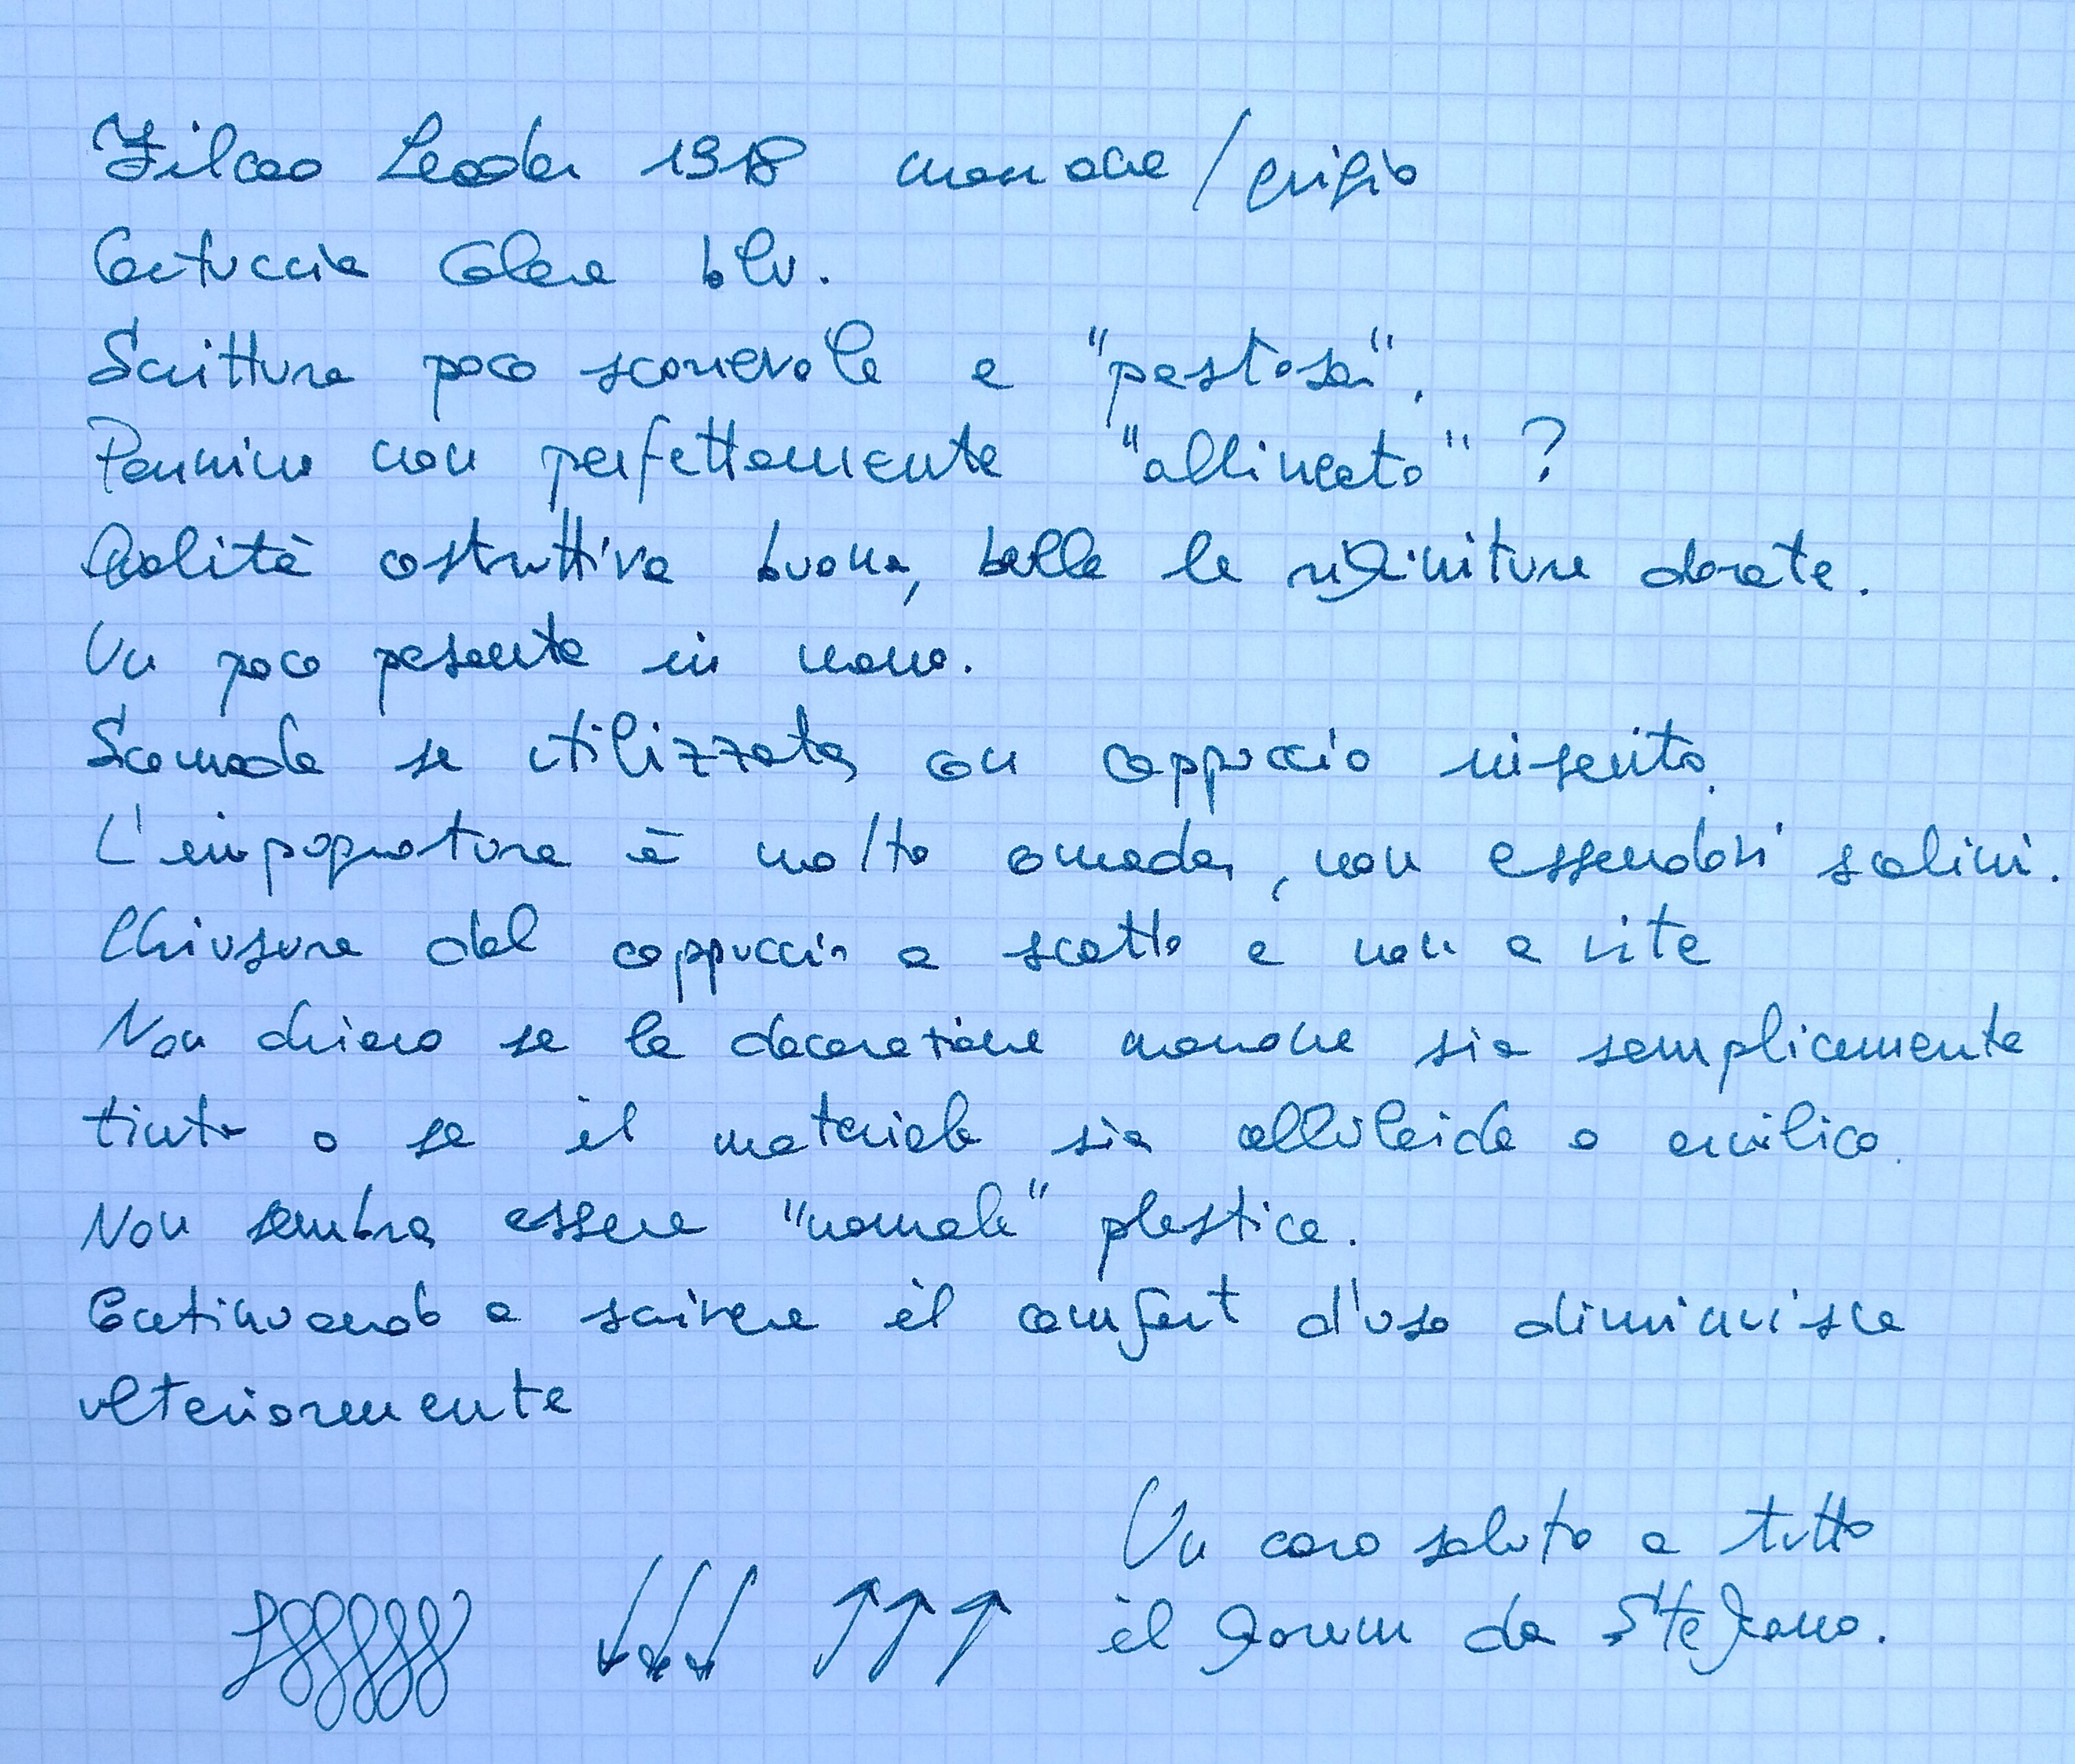 Filcao Leader 1918 marrone/grigio
Cartuccia Colora blu.
Scrittura poco scorrevole e "pastosa".
Pennino non perfettamente "allineato"?
Qualità costruttiva buona, belle le rifiniture dorate.
Un poco pesante in mano.
Scomoda se utilizzata con cappuccio inserito.
L'impugnatura è molto comoda, non essendovi scalini.
Chiusura del cappuccio a scatto e non a vite
Non chiaro se la decorazione marrone sia semplicemente
tinta o se il materiale sia celluloide o acrilico.
Non sembra essere "normale" plastica.
Continuando a scrivere il comfort d'uso diminuisce
ulteriormente
Un caro saluto a tutto
il Forum da Stefano.